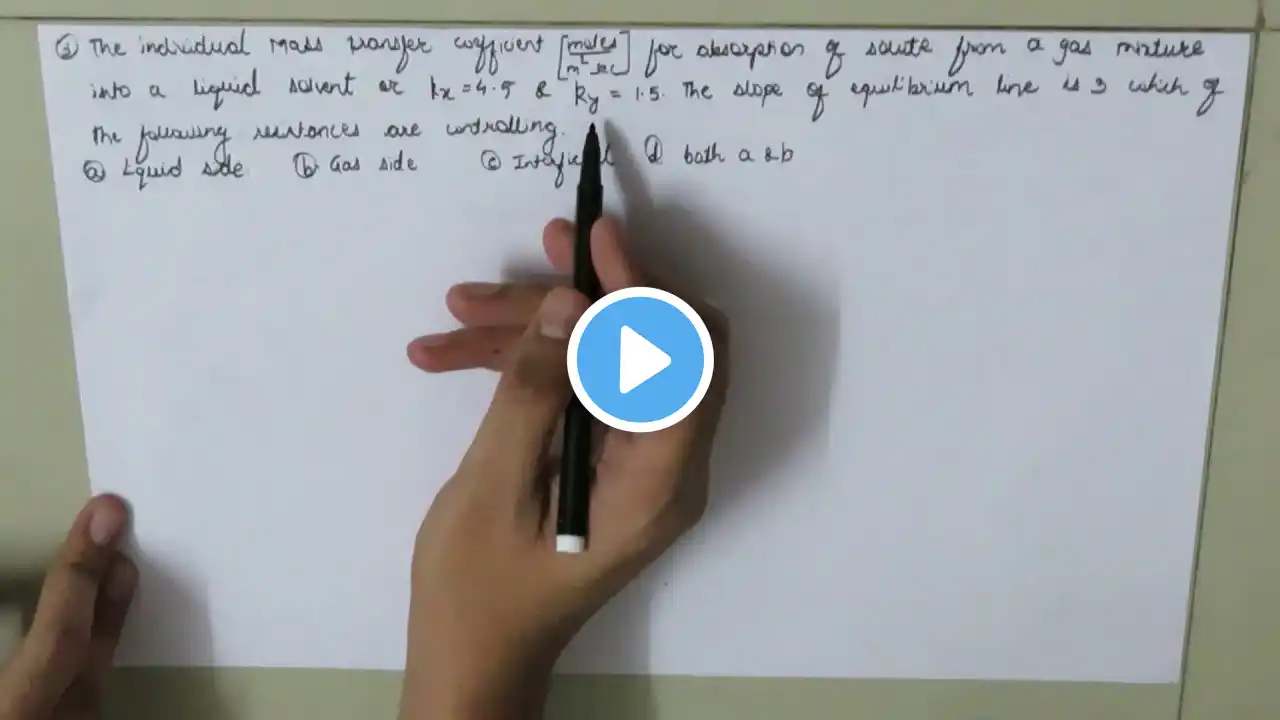 ③ The individual mass transfer coefficient [moles/m² sec] for absorption of solute from a gas mixture
into a liquid solvent are kx = 4.5 & ky = 1.5. The slope of equilibrium line is 3 which of
the following resistances are controlling.
ⓐ Liquid side ⓑ Gas side ⓒ ⓓ both a & b